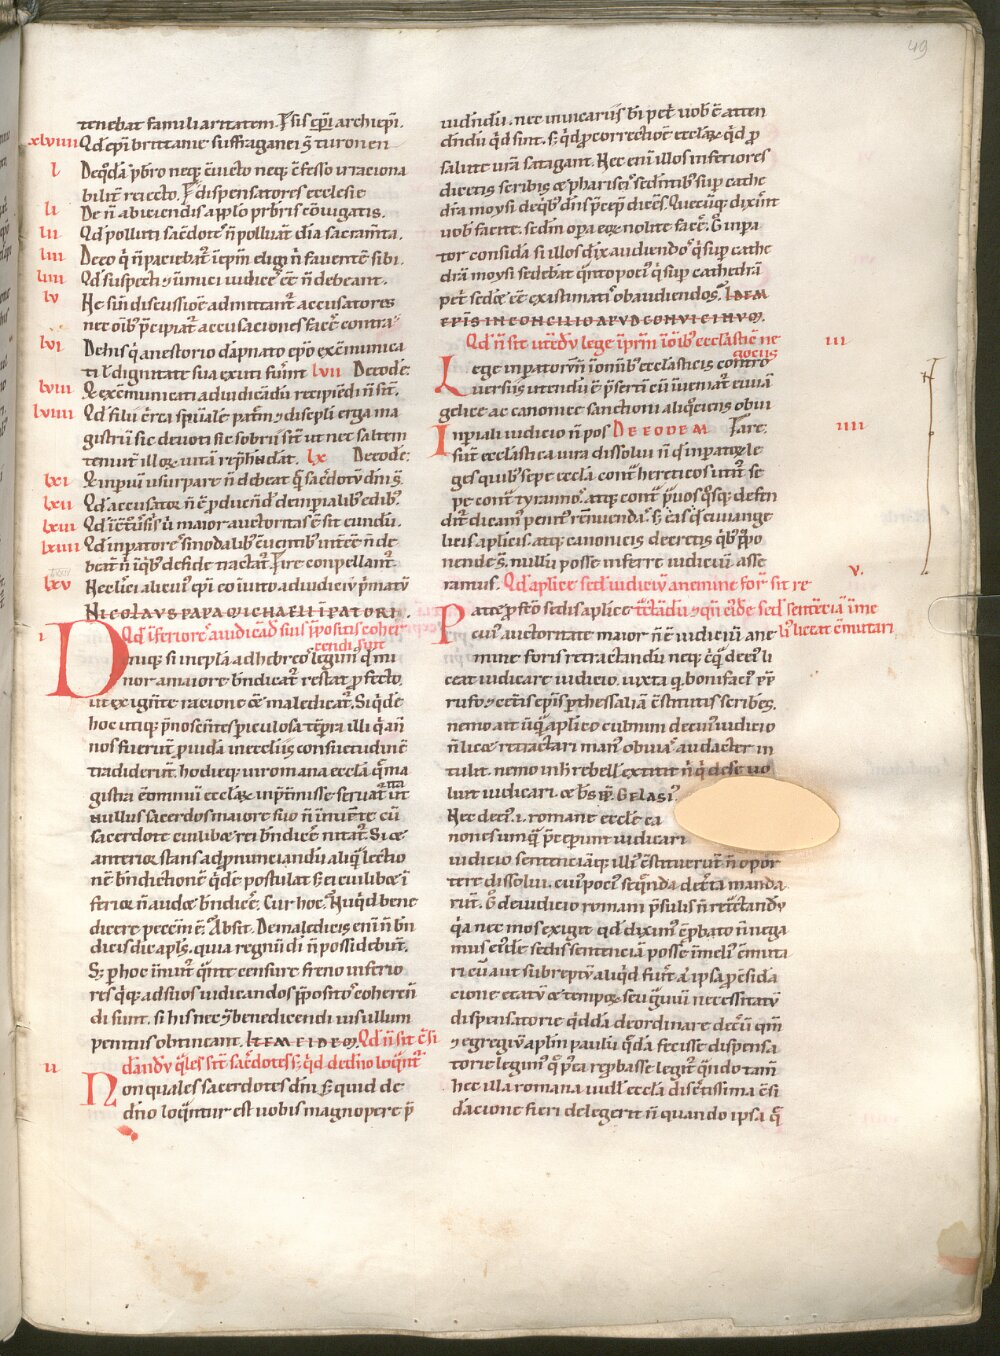 49
tenebat familiaritatem. Fris ep̄i archiep̄i.
xlviiii Qd ep̄i brittanie suffraganei s̄t turonen
l De q̇dā p̄br̄o neq; c̄uicto neq; c̄fesso irraciona
bilit̄ reiecto. F dispensatores ecclesie
li De n̄ abiciendis app̄lo pr̄br̄is c̄iugatis.
lii Qd polluti sac̄dotes n̄ polluāt diā sacram̄ta.
liii De eo q̇ n̄ paciebat̄ ic̄ep̄m eligi n̄ fauentē sibi.
liiii Qd suspecti ⁊ inimici iudices ēē n̄ debeant.
lv Ne sin̄ discussiōe admittant̄ accusatores
nec oīb; p̄cipiat̄ accusaciones facēr contra
lvi De his q̇ a nestorio dāpnato ep̄o excōmunica
ti l̄ dignitate sua exuti fuer̄nt lvii De eodē:
lviii Qr excōmunicati ad iudicādū recipiēdi n̄ sint.
lviiii Qd filii c̄rca sp̄uale patr̄m ⁊ discipli erga ma
gistrū sic deuoti sic sobrii s̄t ut nec saltem
tenuit̄ illor; uitā rep̄hendat. lx De eode:
lxi Qr inp̄iū usurpare n̄ debeat q̇ sac̄dotȳ dn̄i s̄.
lxii Qd accusator n̄ ē p̄ducend; de inp̄ialib; edib;
lxiii Qd maior auctoritas ē sit eundū.
lxiiii Qd inp̄atores sinodalib; c̄uentib; int̄ēē n̄ de
beāt n̄ iq̇b; de fide tractat̄. Fre conpellant̄.
lxv Ne eliei alicui; ep̄i eo iuito ad iudiciū p̄matȳ
NICOLAVS PAPA MICHAELI IP̄ATORI.
i Qd īferiores a iudicād suis p̄positis coher
cendi sint
Denique si in epl̄a ad hebreos legim; q̇d mi
nor a maiore b̄ndicat̄ restat p̄fecto,
ut ex ignt̄e racione ēē maledicat̄. Si q̇de
hoc utiq; p̄noscēntes piculosa tēpra illi q̇ an̄
nos fuerūt p̄uida in ecclīis consuetudinē
tradiderūt. hodieq; in romana eccla q̇ ma
gistra ē omniū ecclar; inp̄t̄misse seruat̄ ut
nullus sacerdos maiore suo n̄ inuente cū
sacerdote cuilibȝ rei b̄ndicē nitat̄. Si ȩ
anterior stans ad p̄nunciandū aliquā lectio
nē b̄ndictionē q̇de postulat s; ei cuilibȝ ī
ferior n̄ audet b̄ndicē. Cur hoc. Nūq̇d bene
dicere peccm̄ ē. Absit. De maledicis eni n̄ bn̄
dicis dic apl̄s. quia regnū dī n̄ possidebūt.
S; p hoc inuit̄ q̇nte censure freno inferio
res q̇q; ad suos iudicandos p̄positos coheren̄
di sunt. si his nec ⁊ benedicendi ius ullum
penitus obtineant. ITEM EIDE͞M. Qd n̄ sit c̄si
ii dandȳ q̇les sint sac̄dotes s; qd de dn̄o loq̇nt̄r
Non quales sacerdotes dn̄i s; quid de
dn̄o loq̇ntur est uobis magnopere p̄
uidendū. nec inuicariis bi pet̄ uob ē atten
dendū q̇d sint. s; q̇d p̄ correctiōe ecclar; q̇d p̄
salute urā satagant. Nec enī illos inferiores
dicetis scribis ⁊ phariseis sedentib; sup cathe
drā moysi de q̇b; dn̄s p̄cep̄ dicēs. Quecūq; dix̄int
uob facite. sed m̄ opera eor; nolite facēr. G inpa
tor considā si illos dīx audiendos q̇ sup cathe
drā moysi sedebāt q̇nto poci; q̇ sup cathedrā
pet̄ sedēr ēē existimatis obaudiendos. IDEM
EPIS IN CONCILIO APVD CONVICINVM.
Qd n̄ sit utēdȳ lege īp̄rm̄ īoīb; ecclāsticis ne iii
gociis
Lege inp̄atorȳ n̄ īomnib; ecclāsticis contro
uersiis utendū ē p̄serti cū īueniat̄ euuā
gelice ac canonice sanctioni aliq̇ciens obui
Inp̄iali iudicio n̄ pos DE EODEM Fare: iiii
sut̄ ecclāstica iura dissolui n̄ q̇ inp̄ator; le
ges quib; sepe eccla cont̄ hereticos utit̄ se
pe cont̄ tyrannos. atq; cont̄ p̄uos q̇sq; defen
dit̄ dicam; penit; rēnuenda. s; eas q̇ euuange
licis aplīcis. atq; canonicis decretis q̇b; p̄po
nende s̄. nullū posse inferre iudiciū asse
ramus. Qd aplīce sed; iudiciȳ a nemine for̄ sit re v.
Patet p̄fecto sedis aplīce tractādū ⁊ qn̄ ei;de sed; sentēcia ī me
cui; auctoritate maior n̄ ē iudiciū ane li; liceat c̄mutari
mine foris retractandū neq; c̄q̇ de ei; li
ceat iudicare iudicio. iuxta q bonifaci; p̄p̄
rufo ⁊ cet̄is ep̄is p thessaliā c̄stitutis scribēs.
nemo ait ūq̇ aplīco culmini de cui; iudicio
n̄ licet retractari man; obuiās audacter in
tulit. nemo inh rebell; extitit n̄ q̇ de se uo
luit iudicari. et bs̄ p̄p̄. GELASI;
Nec de ei; i. romane ecclē ca
nones umq̇ p̄cep̄runt iudicari
iudicio sentenciāq; illi; c̄stituerūt n̄ opor
tere dissolui. cui; poci; seq̇nda decr̄ta manda
rūt. G de iudicio romani p̄sulis n̄ retractandȳ
q̇a nec mos exigit qd dixim; c̄p̄bato n̄ nega
mus ei;de sedis sentenciā posse īmeli; c̄muta
ri cū aut subreptȳ aliq̇d fūit̄ aut ipsa p̄ c̄sida
cione etatȳ ⁊ tempor; seu q̇uiū necessitatȳ
dispensatorie q̇ddā deordinare decrū qm̄
⁊ egregiū apl̄m paulū q̇da fecisse dispensa
torie legim; q̇ p;ta rep̄basse legit̄ q̇ndo tam̄
hec illa romana uidel; eccla discretissima c̄si
dacione fieri delegerit n̄ quando ipsa q̄